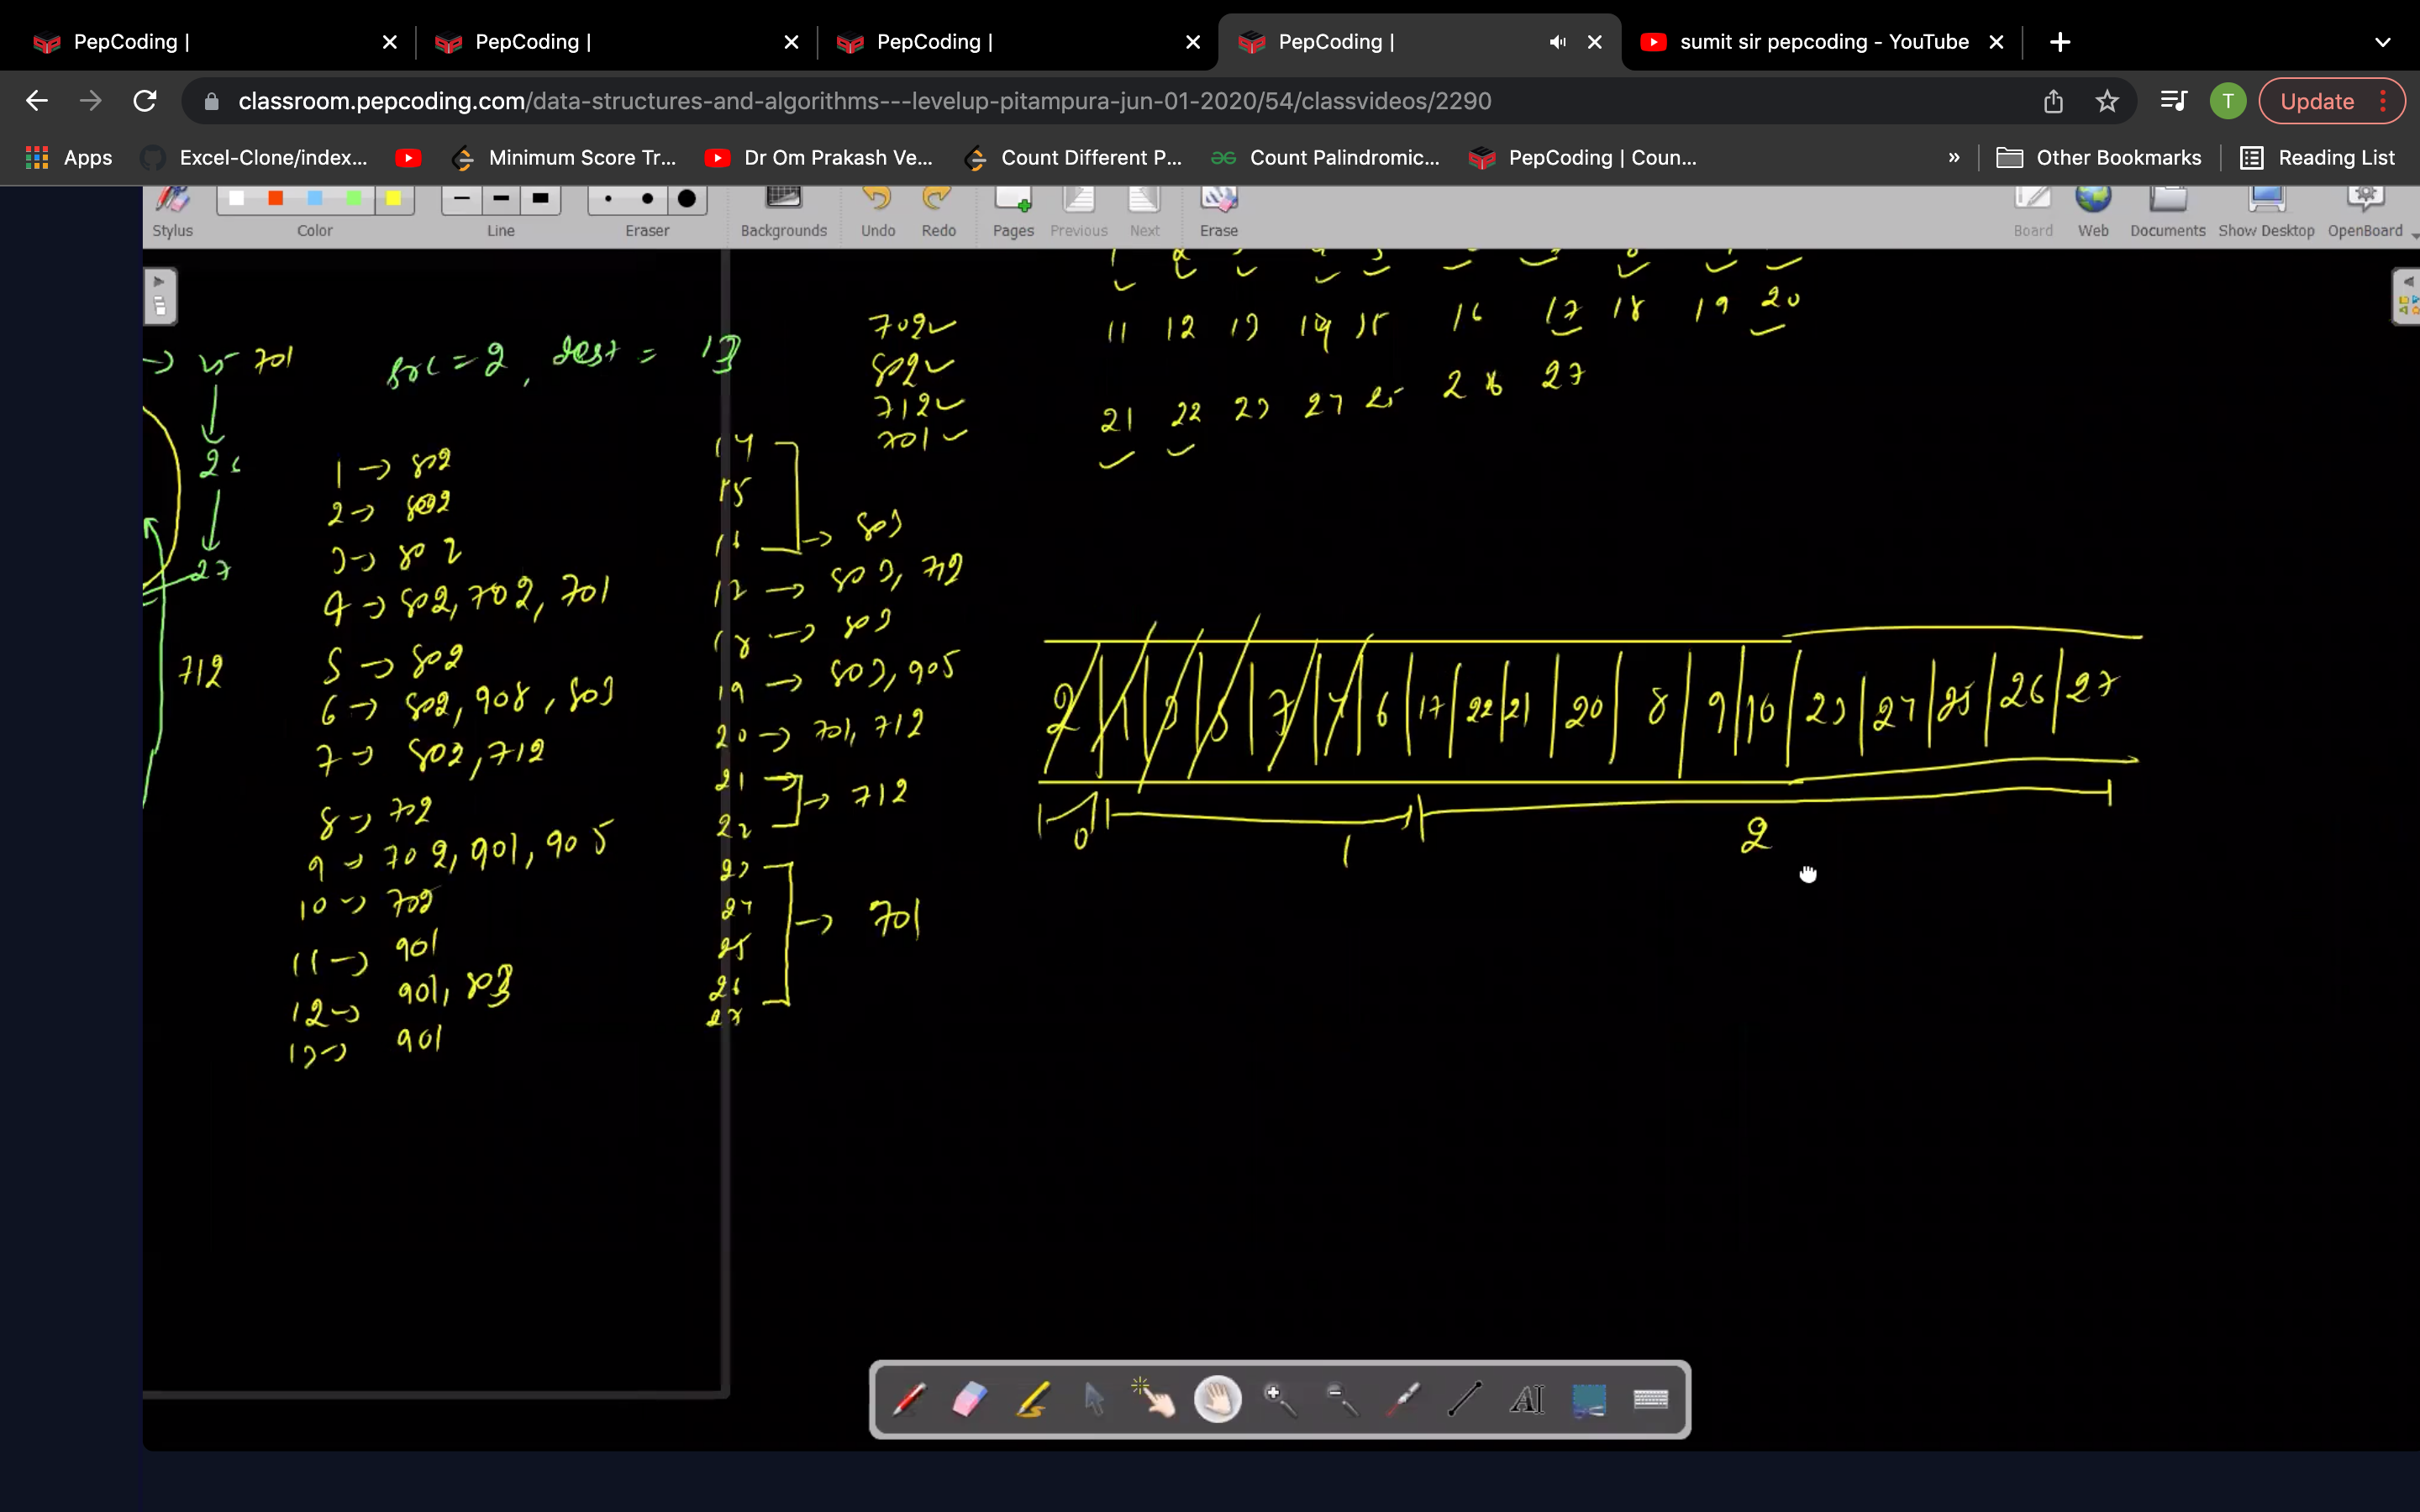 PepCoding |
PepCoding |
PepCoding |
PepCoding |
sumit sir pepcoding - YouTube
classroom.pepcoding.com/data-structures-and-algorithms---levelup-pitampura-jun-01-2020/54/classvideos/2290
T
Update
Apps
Excel-Clone/index...
Minimum Score Tr...
Dr Om Prakash Ve...
Count Different P...
Count Palindromic...
PepCoding | Coun...
»
Other Bookmarks
Reading List
Stylus
Color
Line
Eraser
Backgrounds
Undo
Redo
Pages
Previous
Next
Erase
Board
Web
Documents
Show Desktop
OpenBoard
→ 25 701
26
27
712
src = 2, dest = 13
1 → 802
2 → 802
3 → 802
4 → 802, 702, 701
5 → 802
6 → 802, 908, 803
7 → 802, 712
8 → 702
9 → 702, 901, 905
10 → 702
11 → 901
12 → 901, 803
13 → 901
14
15
16 → 803
17 → 803, 712
18 → 803
19 → 803, 905
20 → 701, 712
21
22 → 712
23
24
25 → 701
26
27
702 ✓
802 ✓
712 ✓
701 ✓
11 12 13 14 15 16 17 18 19 20
21 22 23 24 25 26 27
2 1 3 5 7 4 6 17 22 21 20 8 9 10 23 24 25 26 27
0 1 2
AI